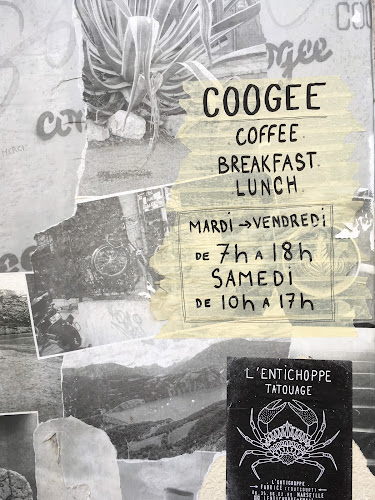 COOGEE
COFFEE
BREAKFAST
LUNCH
MARDI → VENDREDI
DE 7h A 18h
SAMEDI
DE 10h A 17h
MERCI
L'ENTICHOPPE
TATOUAGE
L'ENTICHOPPE
FABRICE
MARSEILLE